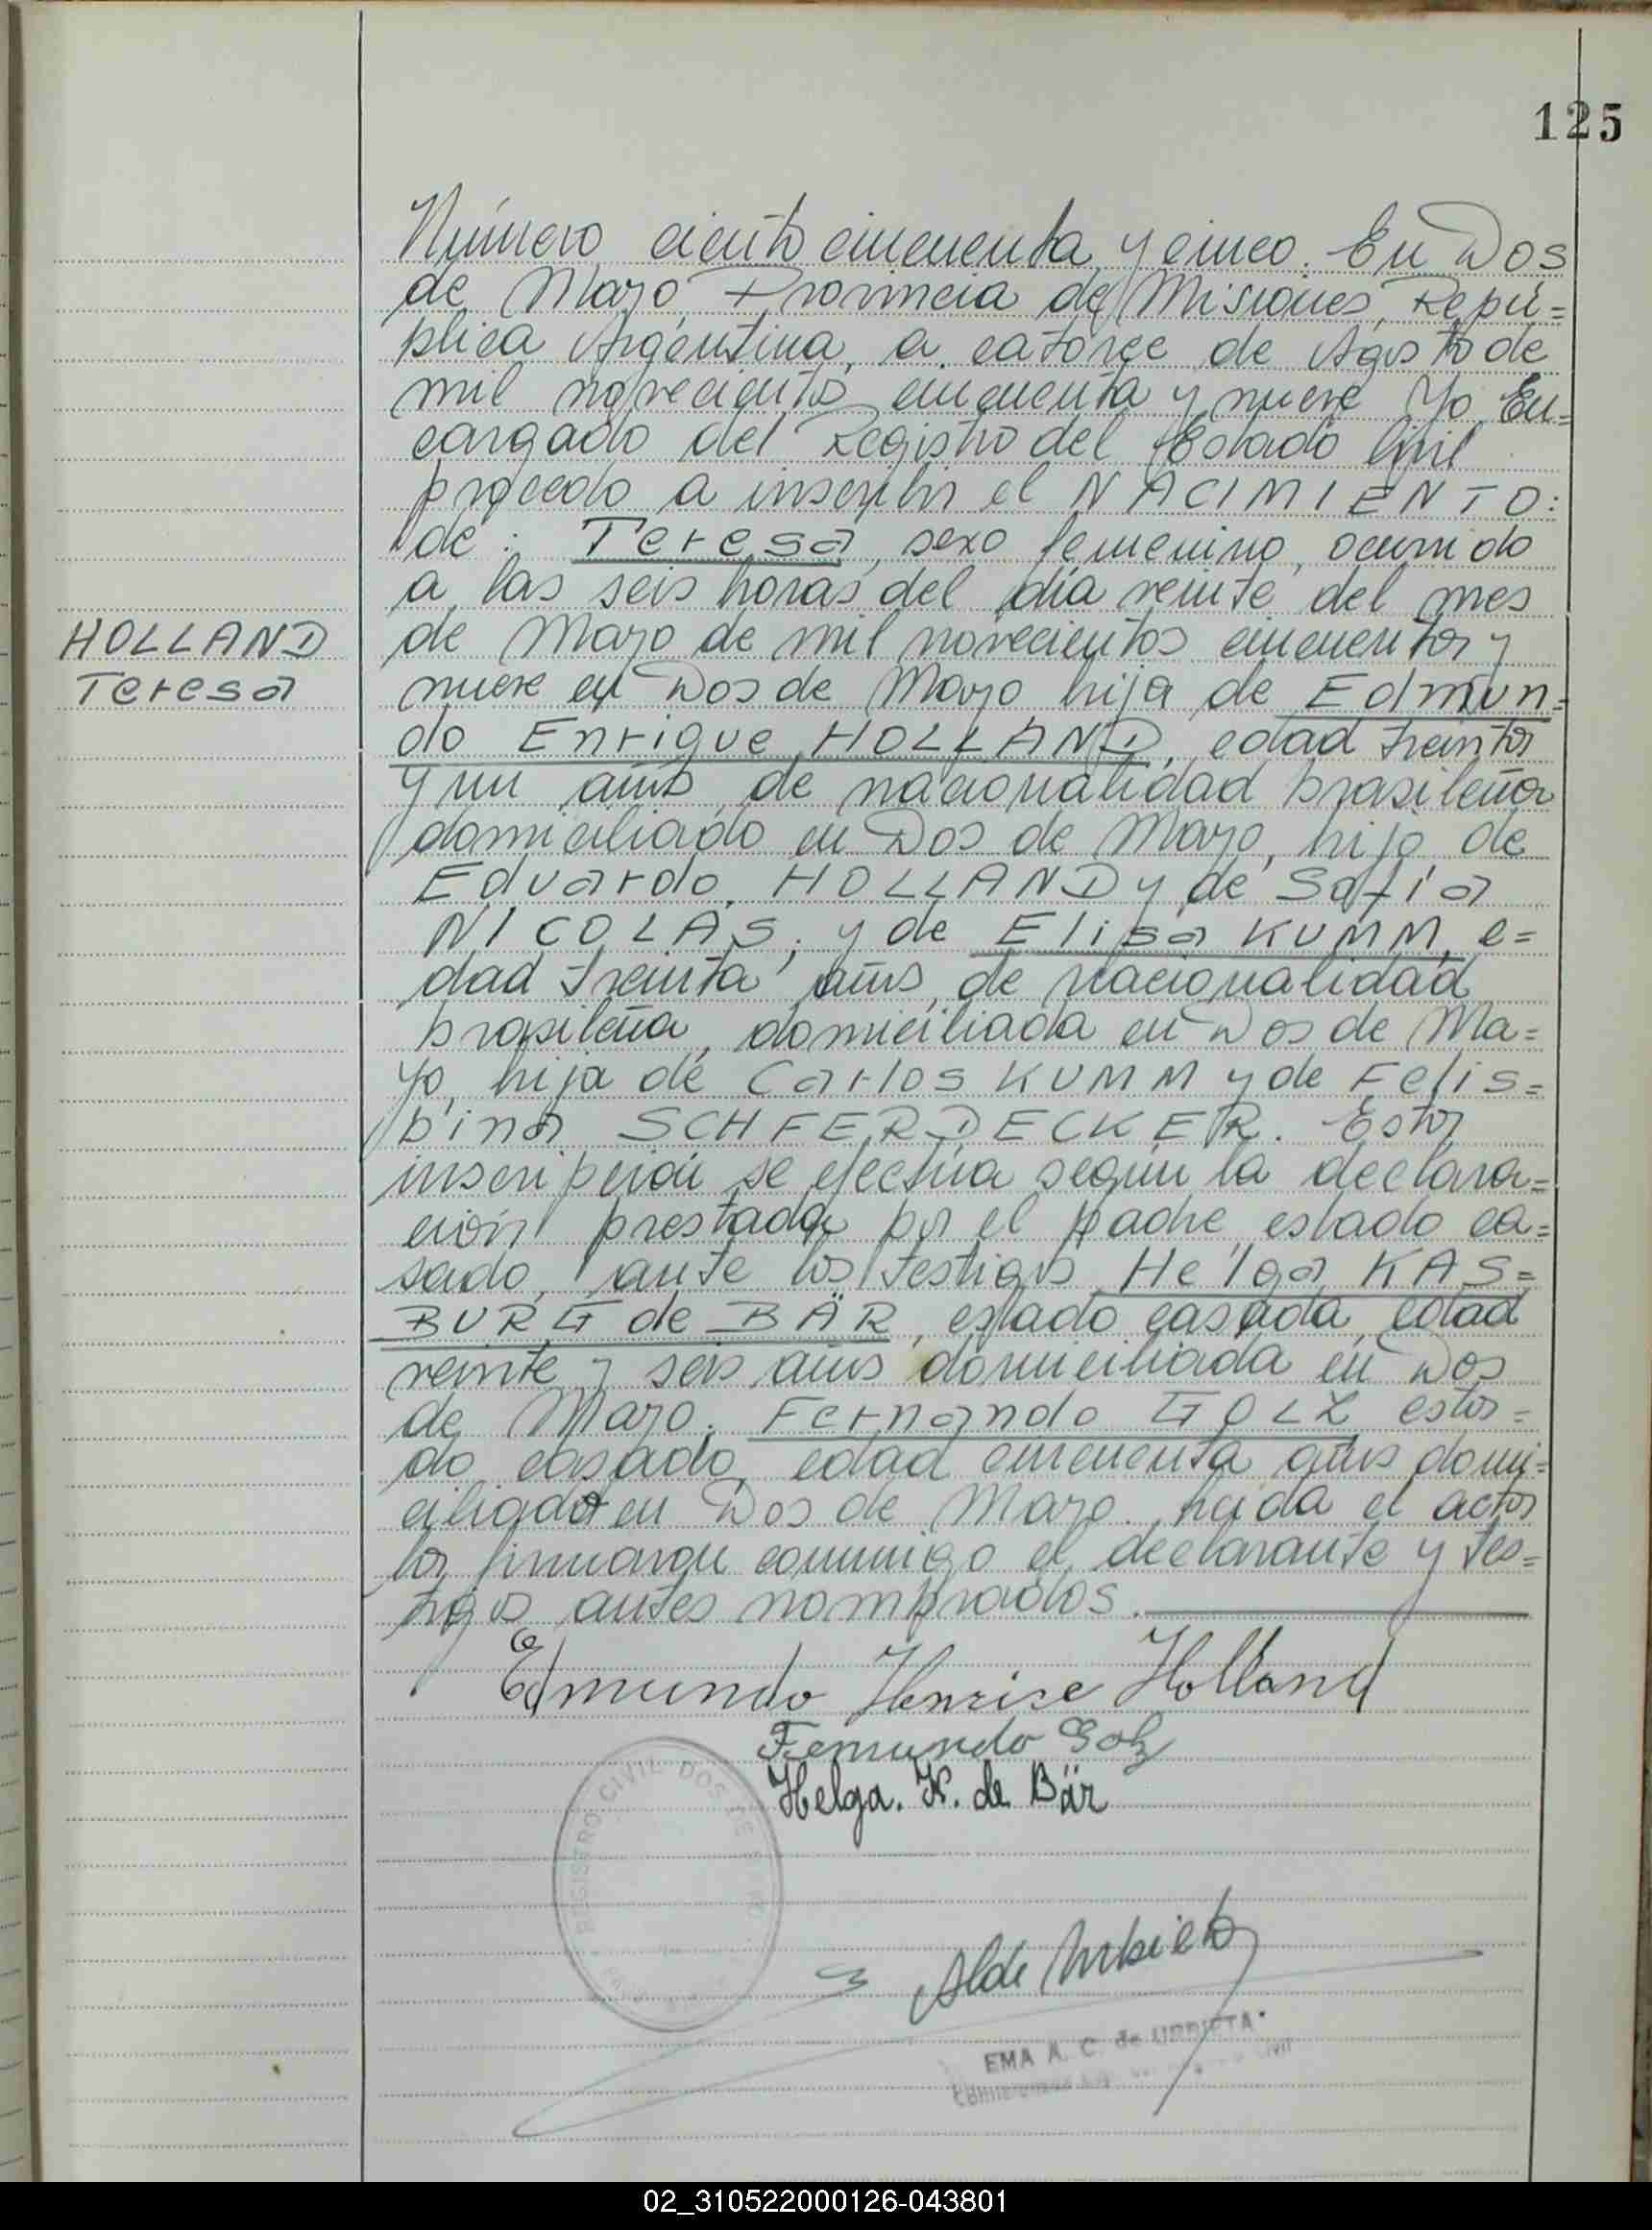 125
Número ciento cincuenta y cinco. En Dos
de Mayo, Provincia de Misiones, Repú=
blica Argentina, a catorce de Agosto de
mil novecientos cincuenta y nueve Yo En=
cargado del Registro del Estado Civil
procedo a inscribir el NACIMIENTO:
de: Teresa, sexo femenino, ocurrido
a las seis horas del día veinte del mes
HOLLAND
Teresa
de Mayo de mil novecientos cincuenta y
nueve en Dos de Mayo hija de Edmun=
do Enrique HOLLAND, edad treinta
y un años, de nacionalidad brasileña
domiciliado en Dos de Mayo, hijo de
Eduardo HOLLAND y de Sofia
NICOLAS, y de Elisa KUMM, e=
dad treinta años, de nacionalidad
brasileña, domiciliada en Dos de Ma=
yo, hija de Carlos KUMM y de Felis=
bina SCHFERDECKER. Esta
inscripción se efectúa según la declara=
ción prestada por el padre estado ca=
sado, ante los testigos Helga KAS=
BURG de BÄR, estado casada, edad
veinte y seis años domiciliada en Dos
de Mayo. Fernando GOLZ esta=
do casado, edad cincuenta años domi=
ciliado en Dos de Mayo. Leída el acta
la firmaron conmigo el declarante y tes=
tigos antes nombrados.
Edmundo Henrise Holland
Fernundo Golz
Helga. K. de Bär
REGISTRO CIVIL DOS DE MAYO
EMA A. C. de URBIETA
02_310522000126-043801